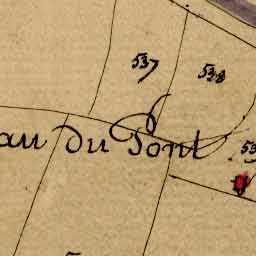 537
538
au du Pont